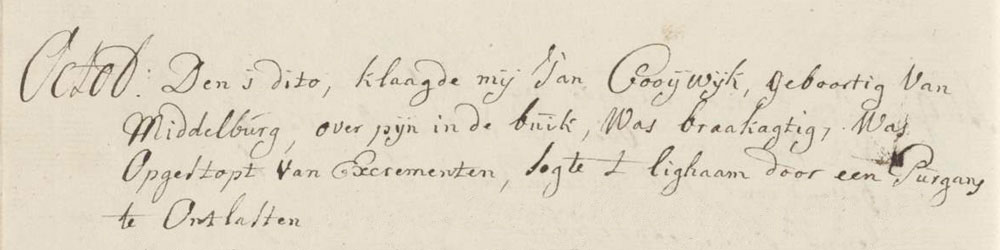 Octob: Den 5 dito, klaagde mij Jan Cooijwijk, geboortig Van
Middelburg, over pijn in de buik, Was braakagtig, Was
Opgestopt van Excrementen, sogte t lighaam door een Purgans
te Ontlasten